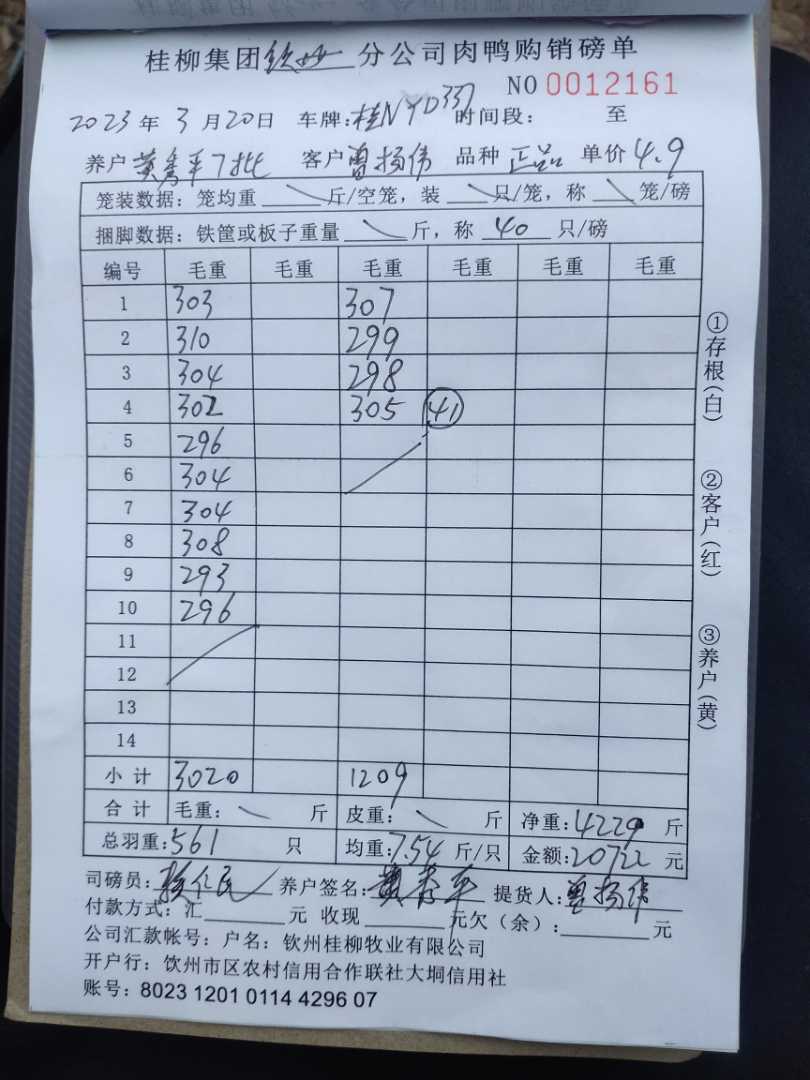 桂柳集团钦州分公司肉鸭购销磅单
NO 0012161
2023年3月20日 车牌:桂NYD337 时间段: 至
养户 7批 客户曾扬伟 品种 正品 单价 4.9
笼装数据: 笼均重 斤/空笼, 装 只/笼, 称 笼/磅
捆脚数据: 铁筐或板子重量 斤, 称 40 只/磅
编号 毛重 毛重 毛重 毛重 毛重 毛重
1 303 307
2 310 299
3 304 298
4 302 305 41
5 296
6 304
7 304
8 308
9 293
10 296
11
12
13
14
小计 3020 1209
合计 毛重: 斤 皮重: 斤 净重:4229 斤
总羽重:561 只 均重:7.54 斤/只 金额:20722 元
司磅员: 养户签名: 提货人:曾扬伟
付款方式: 汇 元 收现 元欠(余): 元
公司汇款帐号: 户名: 钦州桂柳牧业有限公司
开户行: 钦州市区农村信用合作联社大垌信用社
账号: 8023 1201 0114 4296 07
①存根(白)
②客户(红)
③养户(黄)